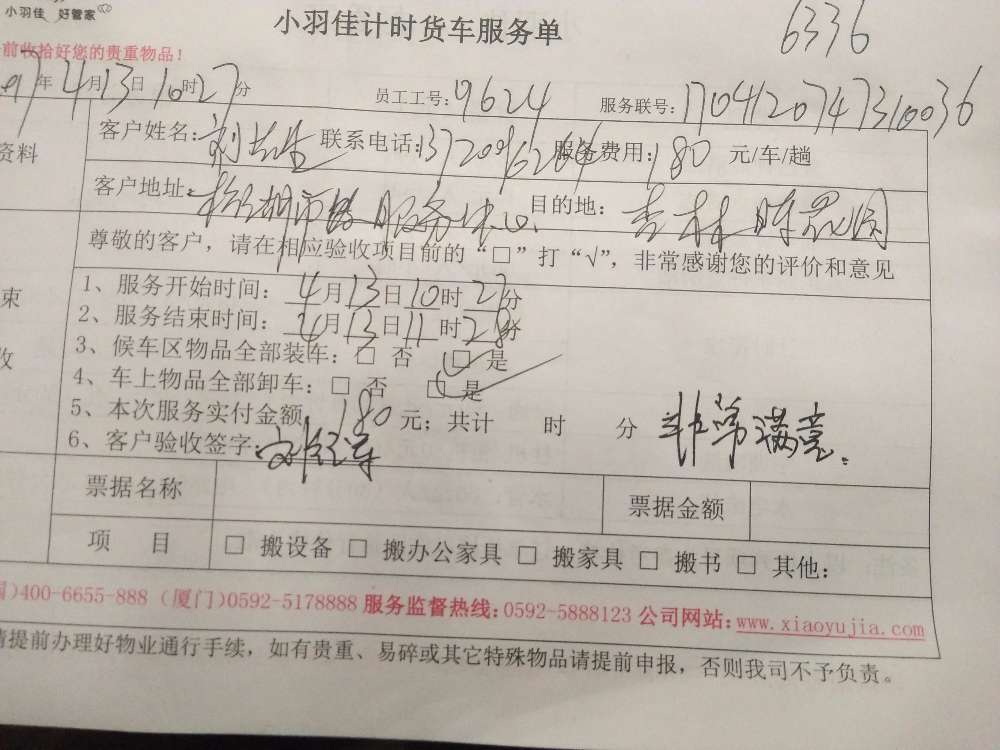 小羽佳 好管家
小羽佳计时货车服务单
6336
前收拾好您的贵重物品!
年4月13日10时27分 员工工号:9624 服务联号:170412074731 0036
资料
客户姓名:刘 联系电话: 服务费用:180 元/车/趟
客户地址: 服务中心 目的地:吉林 花园
尊敬的客户,请在相应验收项目前的“□”打“√”,非常感谢您的评价和意见
束
1、服务开始时间:4月13日10时27分
2、服务结束时间:4月13日11时28分
收
3、候车区物品全部装车:□ 否 ☑ 是
4、车上物品全部卸车:□ 否 ☑ 是
5、本次服务实付金额 180 元;共计 时 分 非常满意.
6、客户验收签字:
票据名称 票据金额
项 目 □ 搬设备 □ 搬办公家具 □ 搬家具 □ 搬书 □ 其他:
)400-6655-888 (厦门)0592-5178888 服务监督热线:0592-5888123 公司网站:www.xiaoyujia.com
请提前办理好物业通行手续,如有贵重、易碎或其它特殊物品请提前申报,否则我司不予负责。